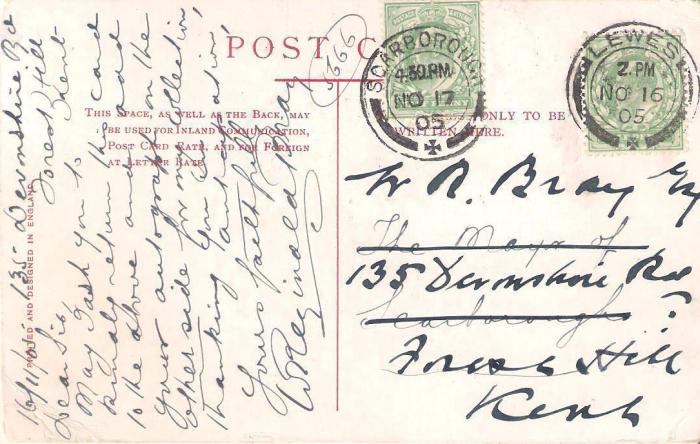 POST C
5666
THIS SPACE, AS WELL AS THE BACK, MAY
BE USED FOR INLAND COMMUNICATION,
POST CARD RATE, AND FOR FOREIGN
AT LETTER RATE.
ONLY TO BE
WRITTEN HERE.
PRINTED AND DESIGNED IN ENGLAND
SCARBOROUGH
4.30 PM
NO 17
05
LEWES
2. PM
NO 16
05
135 Devonshire Rd
Forest Hill
Kent
16/11/5
Dear Sir,
May I ask you to
kindly return this card
to the above and add
your autograph on the
other side for my collection,
thanking you in anticipation,
Yours faithfully
W Reginald Bray
W. R. Bray Esq
The Mayor of
135 Devonshire Rd
Scarborough
Forest Hill
Kent